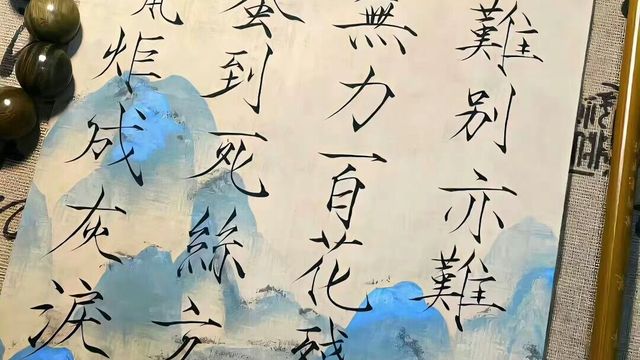 難别亦難
無力百花残
到死絲方
炬成灰淚